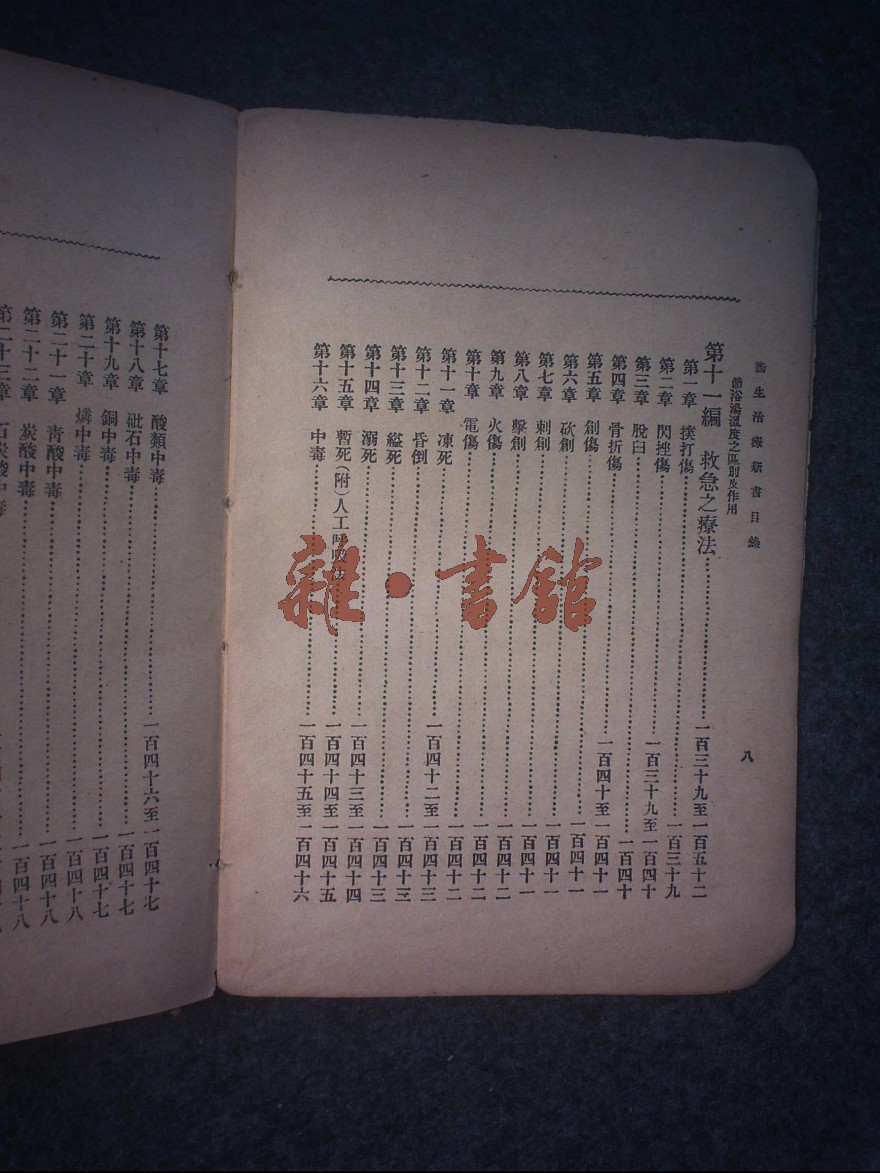 衞生治療新書目錄
八
節浴湯溫度之區別及作用
第十一編 救急之療法……一百三十九至一百五十二
第一章 撲打傷……一百三十九
第二章 閃挫傷……一百三十九至一百四十
第三章 脫臼……一百四十
第四章 骨折傷……一百四十至一百四十一
第五章 創傷……一百四十一
第六章 砍創……一百四十一
第七章 刺創……一百四十一
第八章 擊創……一百四十二
第九章 火傷……一百四十二
第十章 電傷……一百四十二
第十一章 凍死……一百四十二至一百四十三
第十二章 昏倒……一百四十三
第十三章 縊死……一百四十三
第十四章 溺死……一百四十三至一百四十四
第十五章 暫死(附)人工呼吸法……一百四十四至一百四十五
第十六章 中毒……一百四十五至一百四十六
第十七章 酸類中毒……一百四十六至一百四十七
第十八章 砒石中毒……一百四十七
第十九章 銅中毒……一百四十七
第二十章 燐中毒……一百四十八
第二十一章 靑酸中毒……一百四十八
第二十二章 炭酸中毒……一百四十八
第二十三章 石炭酸中毒
雜·書館